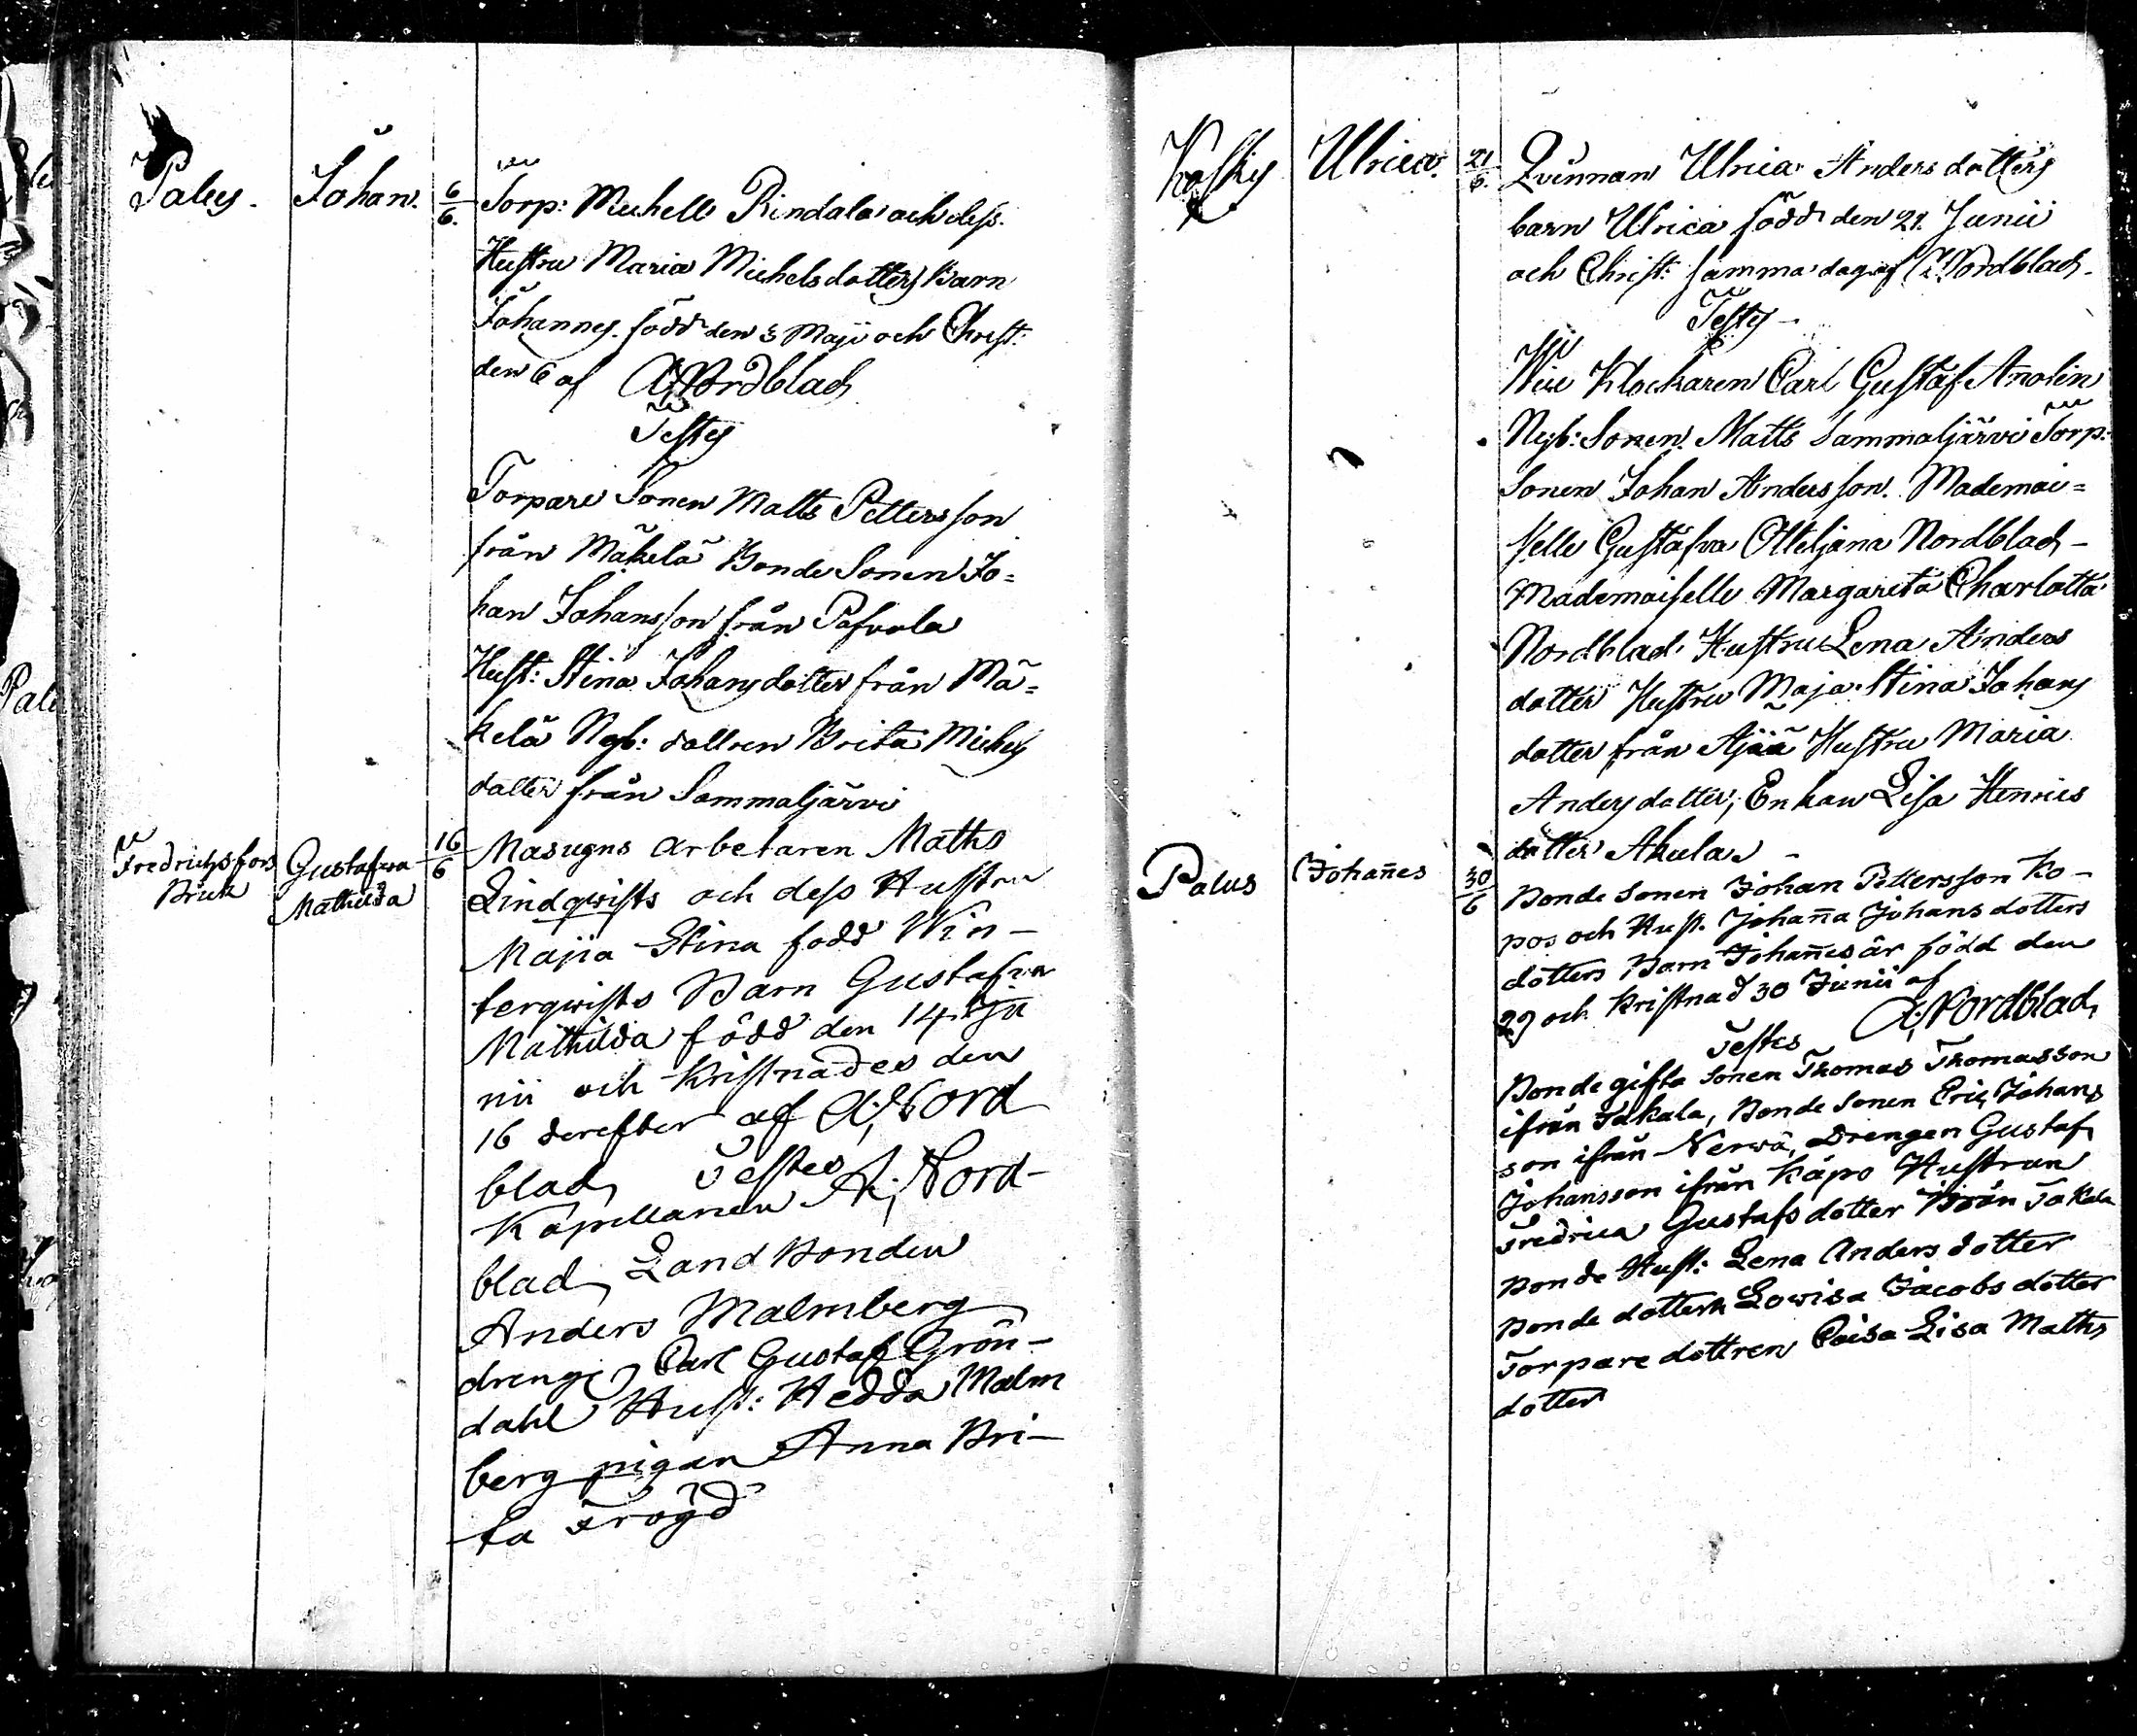 Palus. Johan. 6/6. Torp: Michell Rindala och dess
Hustru Maria Michelsdotters Barn
Johannes född den 3 Maji och Christ:
den 6 af A Nordblad
Testes
Torpare Sonen Matts Pettersson
från Mäkelä Bonde Sonen Jo=
han Johansson från Pafvola
Hust: Stina Johansdotter från Mä=
kelä Nyb: dottren Brita Michels
dotter från Sammaljärvi
Fredrichsfors Bruk Gustafva Mathilda 16/6 Masugns arbetaren Maths
Lindqwists och dess Hustru
Majia Stina född Win-
terqwists Barn Gustafva
Mathilda född den 14 Ju
nii och Kristnades den
16 derefter af A; Nord
blad Testes
Kapellanen A; Nord-
blad, Land Bonden
Anders Malmberg
drengen Carl Gustaf Grön-
dahl Hust: Hedda Malm
berg pigan Anna Bri-
ta Trögd
Koskis Ulrica. 21/6. Qvinnan Ulrica Anders dotters
barn Ulrica född den 21. Junii
och Christ: samma dag af A Nordblad-
Testes-
Vice Klockaren Carl Gustaf Anolin
Nyb: Sonen Matts Sammaljärvi Torp:
Sonen Johan Andersson. Mademoi=
selle Gustafva Otteljana Nordblad-
Mademoiselle Margareta Charlotta
Nordblad Hustru Lena Anders
dotter Hustru Maja Stina Johans
dotter från Äjää Hustru Maria
Anders dotter, Enkan Lisa Henrics
dotter Akula-
Palus Johañes 30/6 Bonde Sonen Johan Pettersson Ko-
pos och Hust. Johaña Johans dotters
dotters Barn Johañes är född den
29 och Kristnad 30 Junii af
A; Nordblad
Testes
Bonde gifta Sonen Thomas Thomasson
ifrån Takala, Bonde Sonen Eric Johans
son ifrån Nerwä, Drengen Gustaf
Johansson ifrån Käpo Hustrun
Fredrica Gustafs dotter från Takala
Bonde Hust: Lena Anders dotter
Bonde dottern Lowisa Jacobs dotter
Torpare dottren Caisa Lisa Maths
dotter